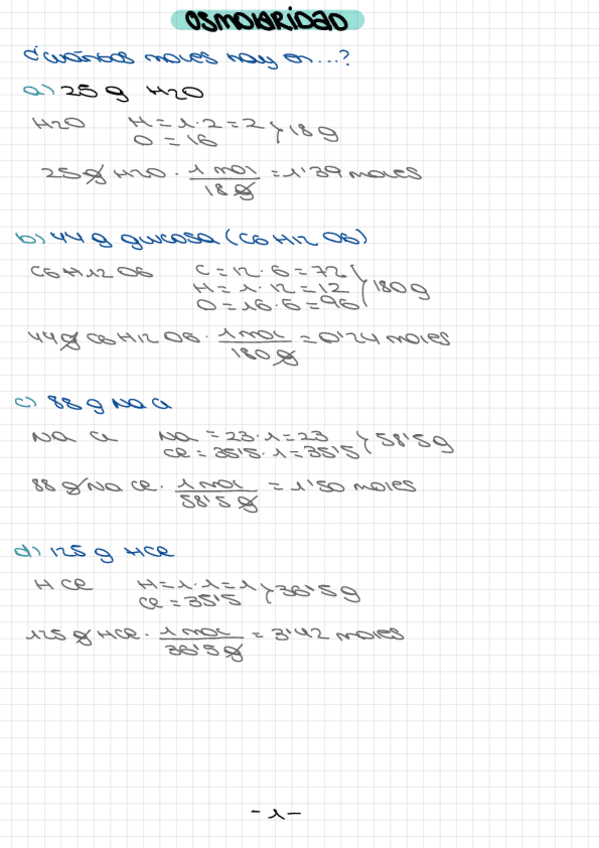 OSMOLARIDAD
¿Cuántos moles hay en...?
a) 25 g H2O
H2O H = 1 · 2 = 2 } 18 g
O = 16
25 g H2O · 1 mol / 18 g = 1'39 moles
b) 44 g glucosa (C6H12O6)
C6H12O6 C = 12 · 6 = 72
H = 1 · 12 = 12 } 180 g
O = 16 · 6 = 96
44 g C6H12O6 · 1 mol / 180 g = 0'24 moles
c) 88 g NaCl
NaCl Na = 23 · 1 = 23 } 58'5 g
Cl = 35'5 · 1 = 35'5
88 g NaCl · 1 mol / 58'5 g = 1'50 moles
d) 125 g HCl
HCl H = 1 · 1 = 1 } 36'5 g
Cl = 35'5
125 g HCl · 1 mol / 36'5 g = 3'42 moles
- 1 -